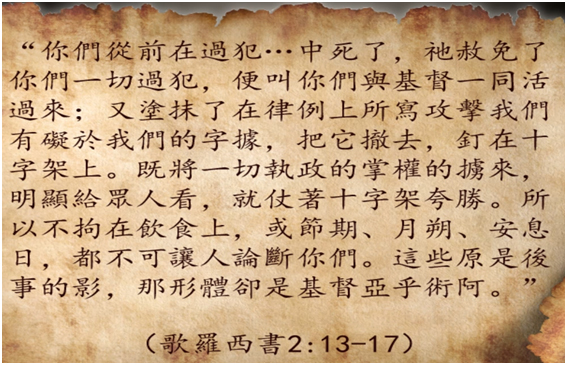 “你們從前在過犯…中死了，祂赦免了
你們一切過犯，便叫你們與基督一同活
過來；又塗抹了在律例上所寫攻擊我們
有礙於我們的字據，把它撤去，釘在十
字架上。既將一切執政的掌權的擄來，
明顯給眾人看，就仗著十字架夸勝。所
以不拘在飲食上，或節期、月朔、安息
日，都不可讓人論斷你們。這些原是後
事的影，那形體卻是基督亞乎術阿。”
（歌羅西書2:13-17）